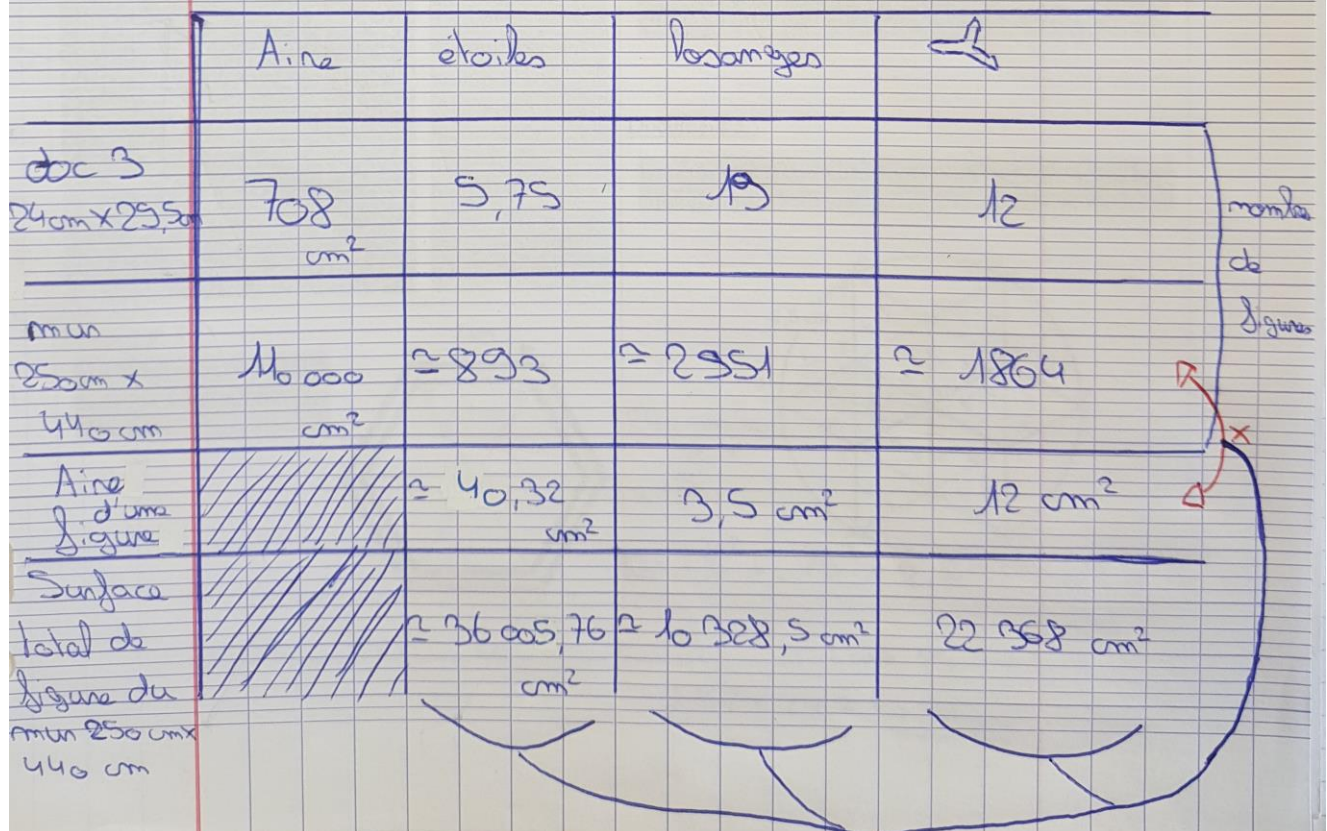 Aire étoiles losanges
doc 3
24cm x 29,5cm
708
cm²
5,75
19
12
nombre
de
figures
mur
250cm x
440 cm
110 000
cm²
≃ 893
≃ 2951
≃ 1864
x
Aire
d'une
figure
≃ 40,32
cm²
3,5 cm²
12 cm²
Surface
total de
figure du
mur 250 cmx
440 cm
≃ 36 005,76
cm²
≃ 10 328,5 cm²
22 368 cm²